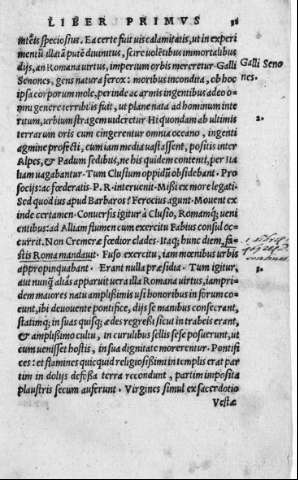 LIBER PRIMVS 38
inteis speciosius. Ea certe fuit uis calamitatis, ut in experi
mentū illatā putē diuinitus, scire uolētibus immortalibus
dijs, an Romana uirtus, imperium orbis mereretur. Galli
Galli Seno
nes.
Senones, gens natura ferox: moribus incondita, ob hoc
ipsa corporum mole, perinde ac armis ingentibus adeo o-
mni genere terribilis fuit, ut plane nata ad hominum inte
ritum, urbium stragem uideretur Hi quondam ab ultimis
2.
terrarum oris cum cingerentur omnia oceano, ingenti
agmine profecti, cum iam media uastassent, positis inter
Alpes, & Padum sedibus, ne his quidem contenti, per Ita
liam uagabantur. Tum Clusium oppidū obsidebant. Pro
socijs: ac fœderatis. P. R. interuenit. Misi ex more legati.
Sed quod ius apud Barbaros? Ferocius agunt. Mouent ex
inde certamen. Conuersis igitur à Clusio, Romamq; ueni
entibus: ad Alliam flumen cum exercitu Fabius consul oc
currit. Non Cremeræ fœdior clades. Itaq; hunc diem, fa-
stis Roma mandauit. Fuso exercitu, iam mœnibus urbis
appropinquabant. Erant nulla præsidia. Tum igitur,
3.
aut nunq̃ aliàs apparuit uera illa Romana uirtus, iampri-
dem maiores natu amplissimis usi honoribus in forum co-
eunt, ibi deuouente pontifice, dijs se manibus consecrant,
statimq; in suas quisq; ædes regressi sicut in trabeis erant,
& amplissimo cultu, in curulibus sellis sese posuerunt, ut
cum uenisset hostis, in sua dignitate morerentur. Pontifi
ces: et flamines quicquid religiosissimi in templis erat par
tim in dolijs defossa terra recondunt, partim imposita
plaustris secum auferunt. Virgines simul ex sacerdotio
Vestæ